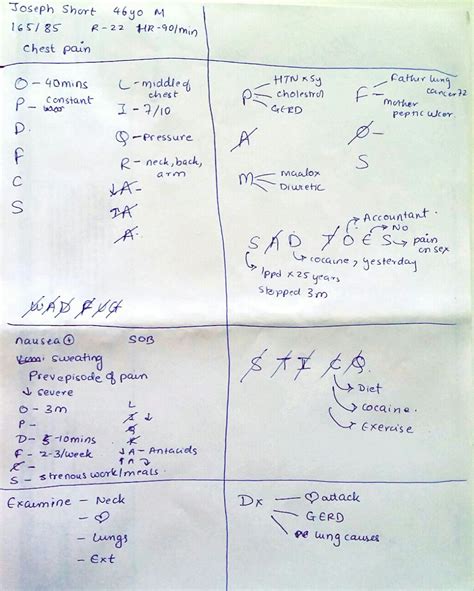 Joseph Short 46yo M
165/85 R-22 HR-90/min
Chest pain
O - 40mins
P - constant
D.
F
C
S
L - middle of
chest
I - 7/10
Q - Pressure
R - neck, back,
arm
↓A -
↑A -
A.
W A D F V G
P
HTN x 5y
cholestrol
GERD
A
M
maalox
Diuretic
F
Father lung
cancer 72
mother
peptic ulcer
O -
S
S A D T O E S
Accountant.
No
pain
on sex
cocaine, yesterday
1ppd x 25 years
stopped 3m
nausea ⊕ SOB
sweating
Prev episode of pain
↓ severe
O - 3m
P -
D - 5-10mins
F - 2-3/week
C -
S - strenous work/meals.
L
I ↓
Q
R
↓A - Antacids
↑A
S T I C Q
Diet
cocaine.
Exercise
Examine - Neck
- ♡
- Lungs
- Ext
Dx
♡ attack
GERD
lung causes